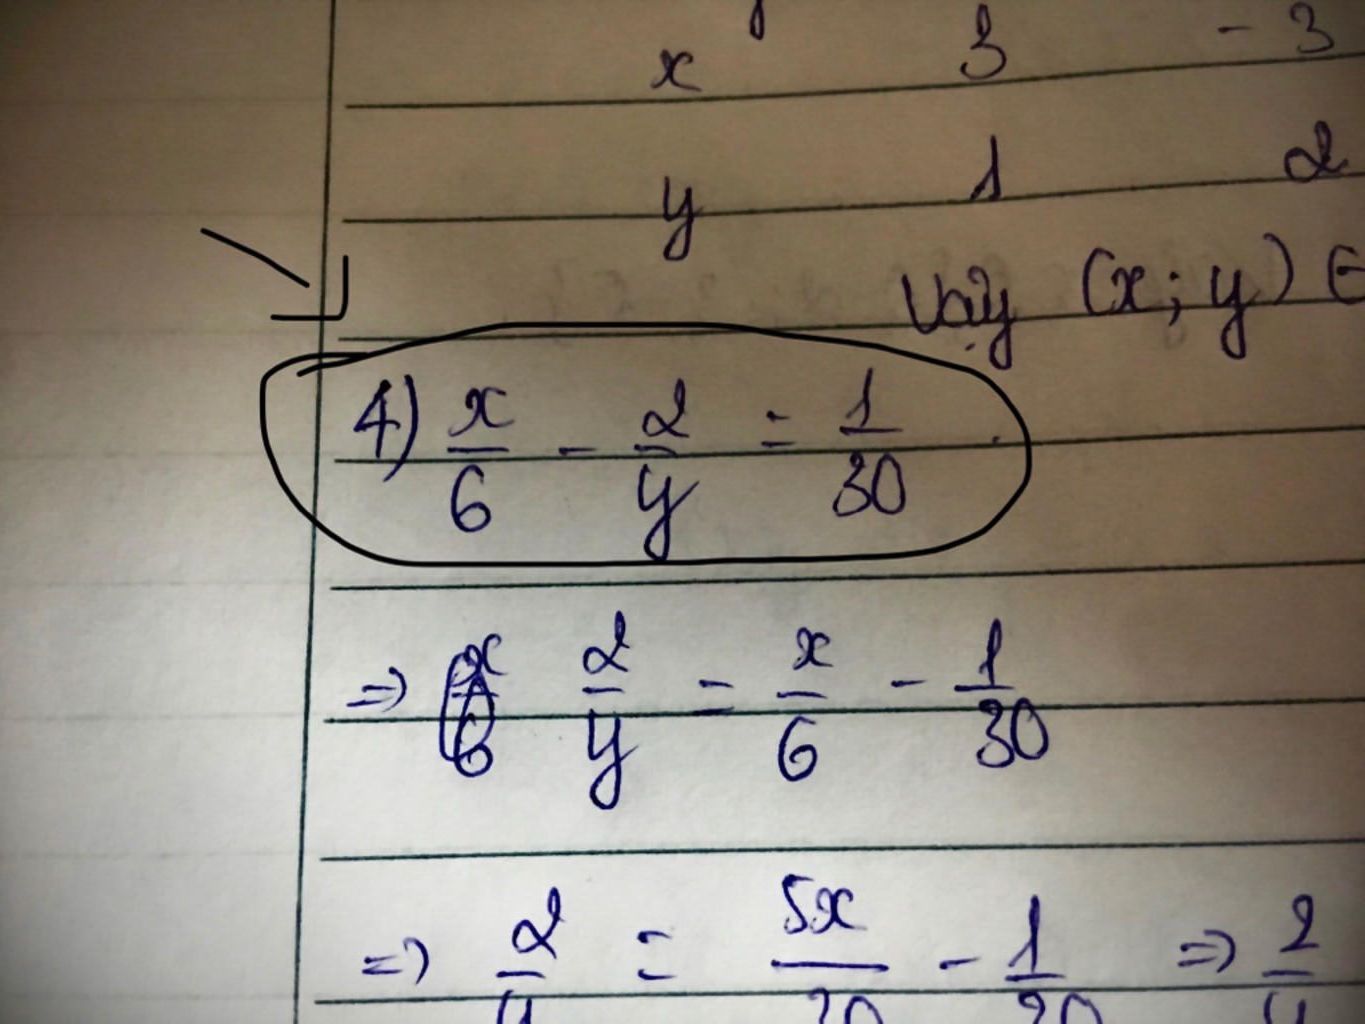 x 3 -3
y 1 2
Vậy (x; y) ∈
4) x/6 - 2/y = 1/30
=> 2/y = x/6 - 1/30
=> 2/y = 5x/30 - 1/30 => 2/y